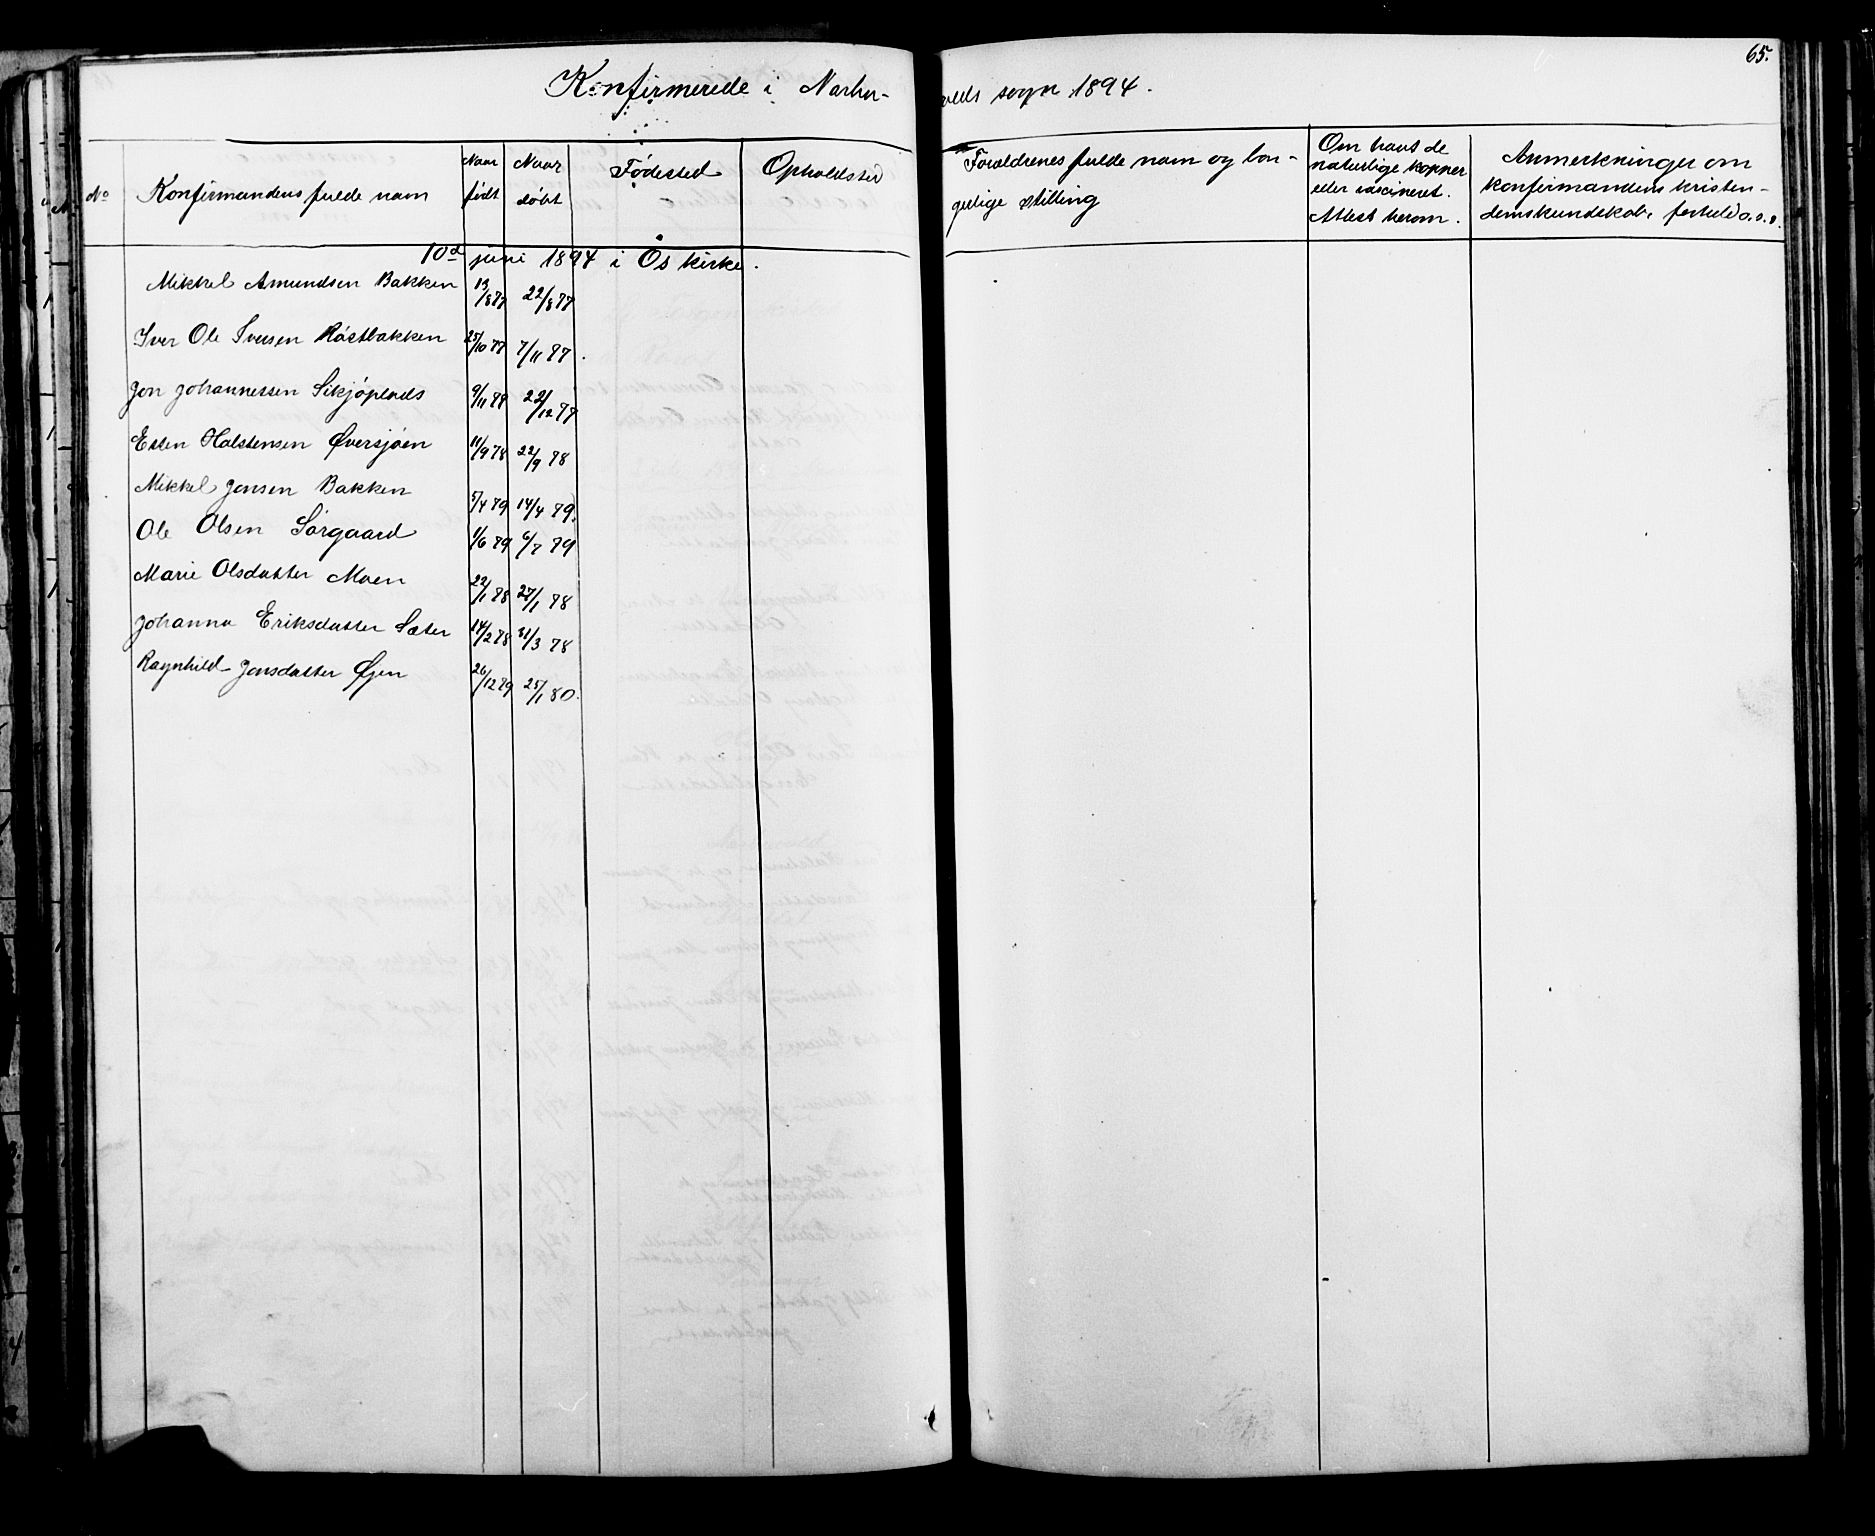 65.
Konfirmerede i Narbu-volds sogn 1894.
No
Konfirmandens fulde navn
Naar født
Naar døbt
Fødested
Opholdsted
Forældrenes fulde navn og bor-
gerlige stilling
Om havt de
naturlige kopper
eller vaccineret.
Attest herom.
Anmerkninger om
konfirmandens kristen-
domskundskab, forhold o.s.v.
10de juni 1894 i Os kirke.
Mikkel Amundsen Bakken 13/8 77 22/8 77
Iver Ole Iversen Røstbakken 25/10 77 7/11 77.
Jon Johannessen Sikjøplads 9/11 77 22/12 77
Esten Halstensen Øversjøen 11/9 78 22/9 78
Mikkel Jonsen Bakken 5/4 79 14/4 79.
Ole Olsen Sørgaard 1/6 79 6/7 79
Marie Olsdatter Moen 22/1 78 27/1 78
Johanna Eriksdatter Sæter 14/2 78 31/3 78
Ragnhild Jonsdatter Øien 26/12 79 25/1 80.